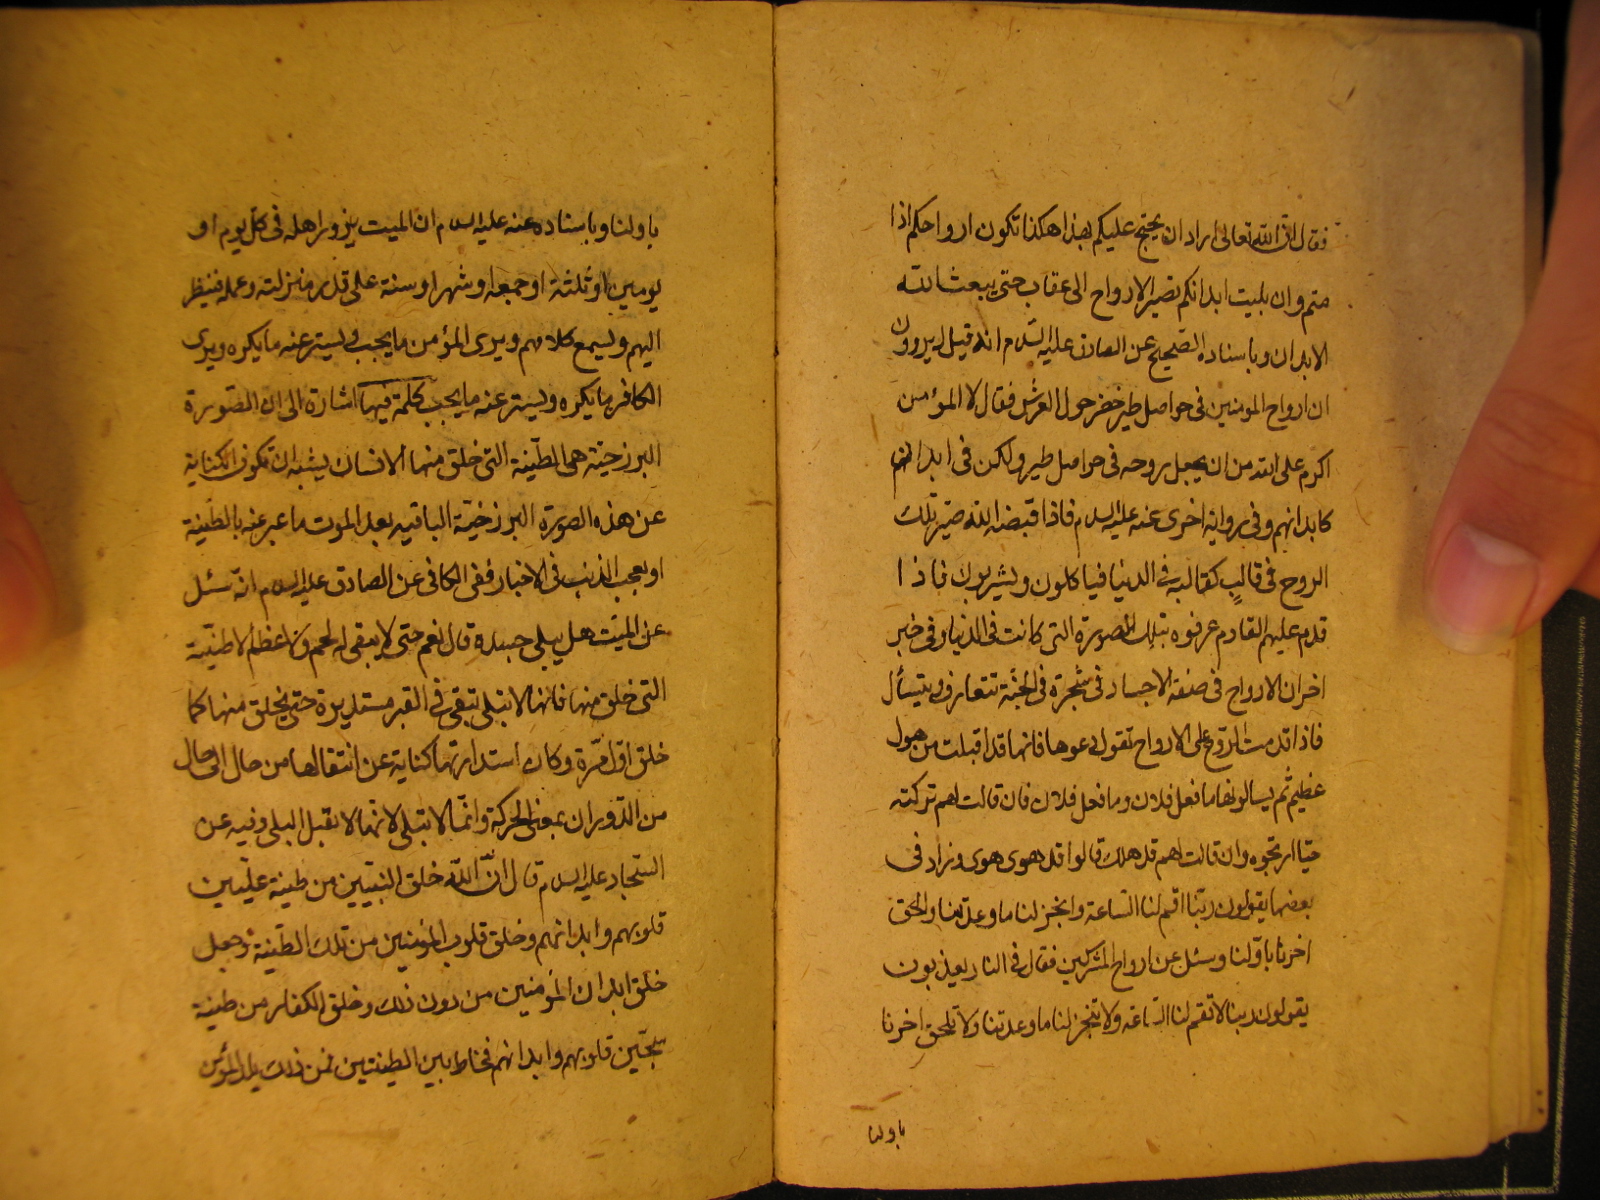 فقال ان الله تعالى اراد ان يحتج عليكم بهذا هكذا تكون ارواحكم اذا
متم وان بليت ابدانكم تصير الارواح الى عقاب حتى يبعث الله
الابدان وباسناده الصحيح عن الصادق عليه السلام انه قيل له يروون
ان ارواح المومنين فى حواصل طير خضر حول العرش فقال لا المؤمن
اكرم على الله من ان يجعل روحه فى حواصل طير ولكن فى ابدانهم
كابدانهم وفى رواية اخرى عنه عليه السلام فاذا قبضه الله صير تلك
الروح فى قالب كقالبه فى الدنيا فياكلون ويشربون فاذا
قدم عليهم القادم عرفوه بتلك الصورة التى كانت فى الدنيا وفى خبر
اخر ان الارواح فى صفة الاجساد فى شجرة فى الجنة تتعارف ويتسأل
فاذا قدمت الروح على الارواح تقول دعوها فانها قد اقبلت من هول
عظيم ثم يسالونها ما فعل فلان وما فعل فلان فان قالت لهم تركته
حيا ارتجوه وان قالت لهم قد هلك قالوا قد هوى هوى وزاد فى
بعضها يقولون ربنا اقم لنا الساعة وانجز لنا ما وعدتنا والحق
اخرنا باولنا وسئل عن ارواح المشركين فقال فى النار يعذبون
يقولون ربنا لا تقم لنا الساعة ولا تنجز لنا ما وعدتنا ولا تلحق اخرنا
باولنا
باولنا وباسناده عنه عليه السلام ان الميت يزور اهله فى كل يوم او
يومين او ثلثة او جمعة او شهر او سنة على قدر منزلته وعمله فينظر
اليهم ويسمع كلامهم ويرى المؤمن ما يحب ويستر عنه ما يكره ويرى
الكافر ما يكره ويستر عنه ما يحب كلمة فيها اشارة الى ان الصورة
البرزخية هى الطينة التى خلق منها الانسان يشبه ان تكون الكناية
عن هذه الصورة البرزخية الباقيه بعد الموت ما عبر عنه بالطينة
او بعجب الذنب فى الاخبار ففى الكافى عن الصادق عليه السلام انه سئل
عن الميت هل يبلى جسده قال نعم حتى لا يبقى له لحم ولا عظم الا طينة
التى خلق منها فانها لا تبلى تبقى فى القبر مستديرة حتى يخلق منها كما
خلق اول مرة وكان استدارتها كناية عن انتقالها من حال الى حال
من الدوران بمعنى الحركة وانما لا تبلى لانها لا تقبل البلى وفيه عن
السجاد عليه السلام قال ان الله خلق النبيين من طينة عليين
قلوبهم وابدانهم وخلق قلوب المومنين من تلك الطينة وجعل
خلق ابدان المؤمنين من دون ذلك وخلق الكفار من طينة
سجين قلوبهم وابدانهم فخلط بين الطينتين فمن ذلك يلد المؤمن